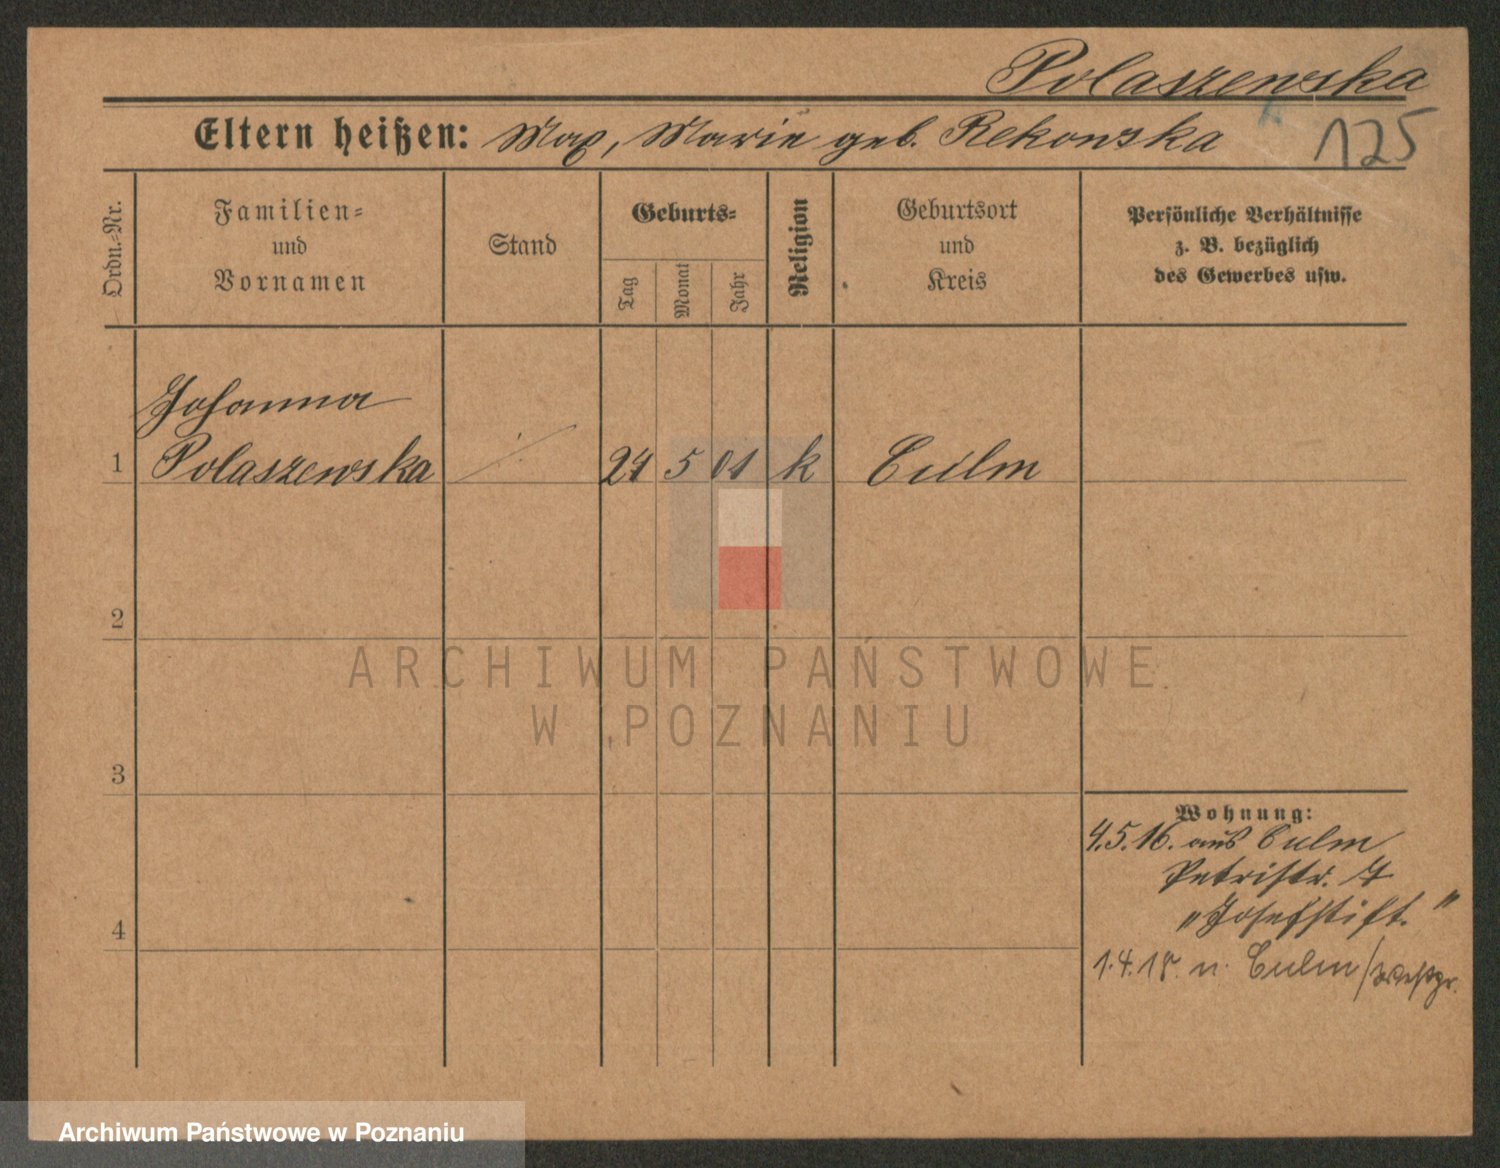 Polaszewska
Eltern heißen: Max, Marie geb. Rekowska
125
Ordn.-Nr.
Familien-
und
Vornamen
Stand
Geburts-
Tag
Monat
Jahr
Religion
Geburtsort
und
Kreis
Persönliche Verhältnisse
z. B. bezüglich
des Gewerbes usw.
Johanna
1 Polaszewska ./. 24 5 01 k Culm
2
3
4
Wohnung:
4.5.16. aus Culm
Petristr. 7
"Josefstift."
1.4.18. n. Culm/Westpr.
ARCHIWUM PAŃSTWOWE
W POZNANIU
Archiwum Państwowe w Poznaniu